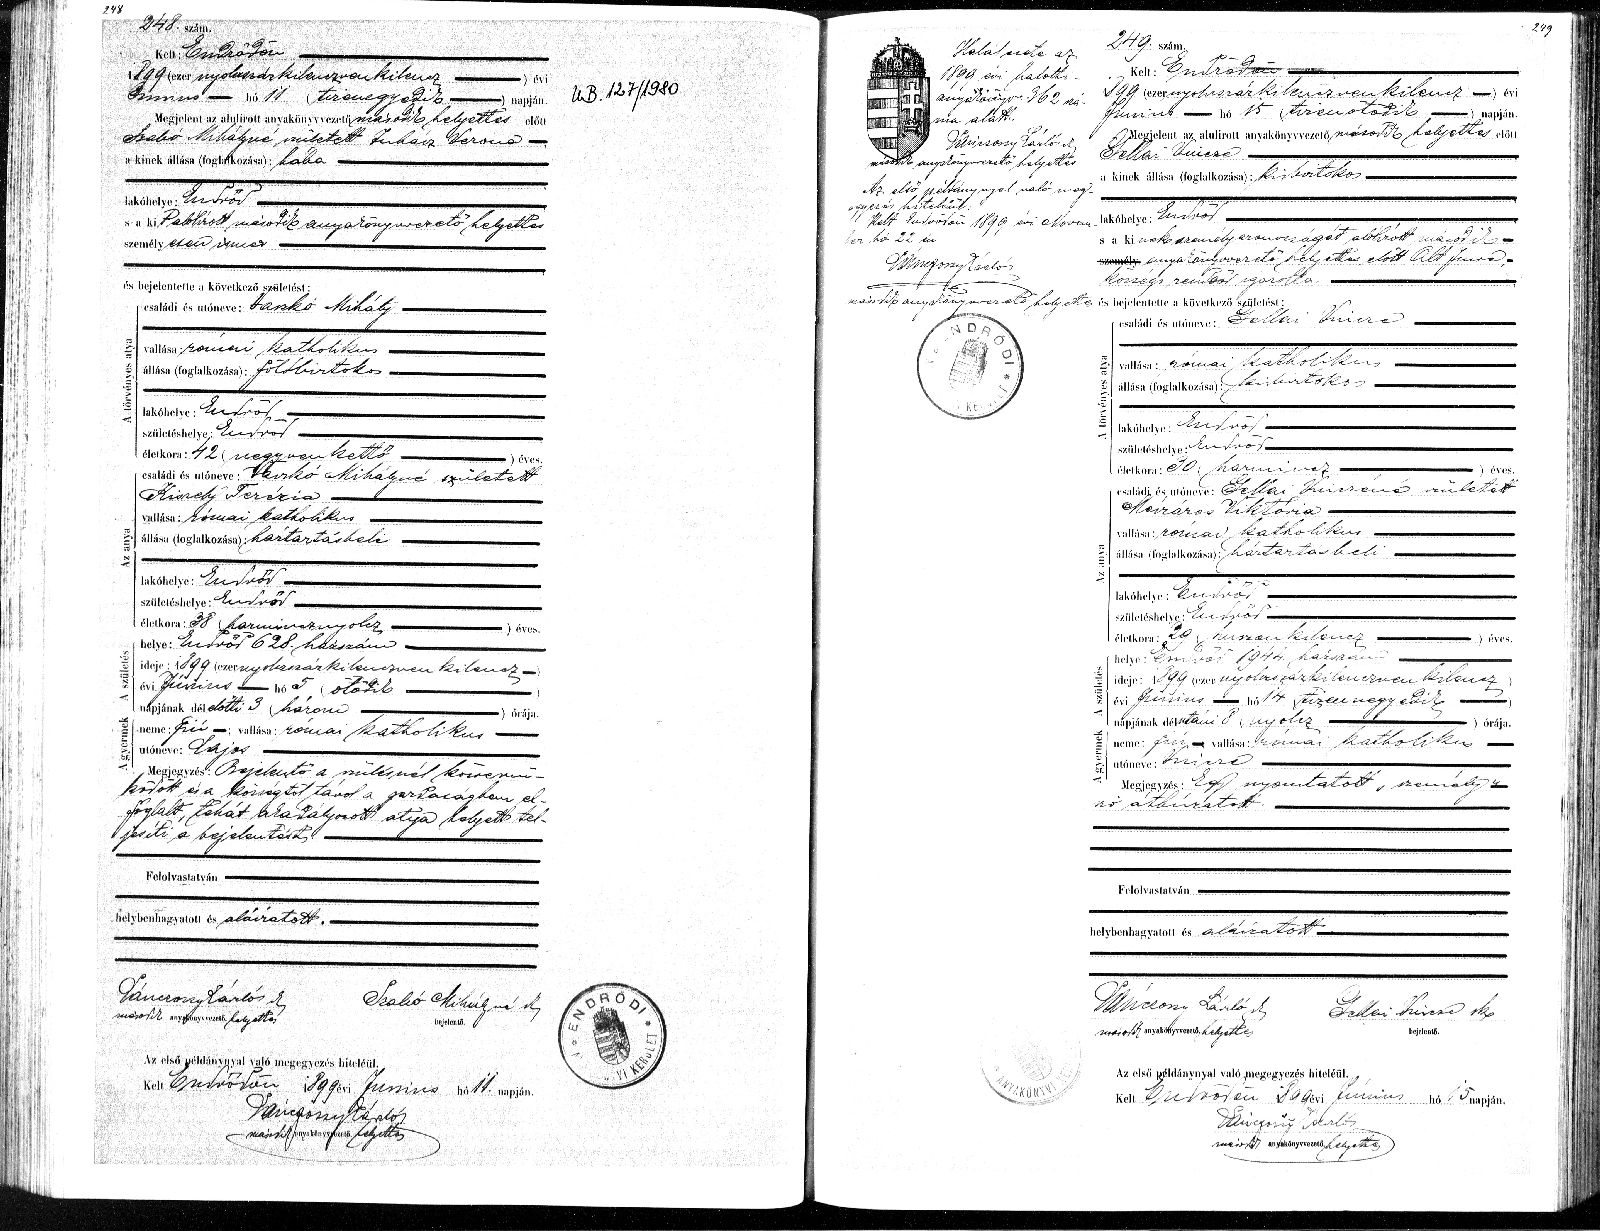 248
248. szám.
Kelt: Endrődön
1899 (ezer nyolcszázkilenczvenkilencz) évi
Junius hó 11 (tizenegyedik) napján.
Megjelent az alulirott anyakönyvvezető második helyettes előtt
Szabó Mihályné született Juhász Verona
a kinek állása (foglalkozása): bába
lakóhelye: Endrőd
s a kit alólirott második anyakönyvvezető helyettes
személyesen ismer
és bejelentette a következő születést:
A törvényes atya
családi és utóneve: Vaskó Mihály
vallása: római katholikus
állása (foglalkozása): földbirtokos
lakóhelye: Endrőd
születéshelye: Endrőd
életkora: 42 (negyvenkettő) éves.
Az anya
családi és utóneve: Vaskó Mihályné született
Terézia
vallása: római katholikus
állása (foglalkozása): háztartásbeli
lakóhelye: Endrőd
születéshelye: Endrőd
életkora: 38 (harmincznyolcz) éves.
A születés
helye: Endrőd 628. házszám
ideje: 1899 (ezer nyolczszázkilenczvenkilencz)
évi Junius hó 5 (ötödik)
napjának délelőtti 3 (három) órája.
A gyermek
neme: fiú; vallása: római katholikus
utóneve: Lajos
Megjegyzés: Bejelentő a szülésnél közremű-
ködött és a községtől távol a gazdaságban el-
foglalt, tehát akadályozott atyja helyett tel-
jesíti a bejelentést.
Felolvastatván
helybenhagyatott és aláiratott.
Váncsony Károly Szabó Mihályné
második anyakönyvvezető helyettes bejelentő.
Az első példánynyal való megegyezés hiteléül.
Kelt Endrődön 1899 évi Junius hó 11. napján.
második anyakönyvvezető helyettes
U.B. 127/1980
ENDRŐDI
YI KERÜLET
249
Halál esete az
1899 évi halotti
anyakönyv 362 szá-
ma alatt.
második anyakönyvvezető helyettes
Az első példánynyal való meg-
egyezés hiteléül.
Kelt Endrődön 1899 évi Novem-
ber hó 22 én
második anyakönyvvezető helyettes
ENDRŐDI
249. szám.
Kelt: Endrődön
1899 (ezer nyolczszázkilenczvenkilencz) évi
Junius hó 15 (tizenötödik) napján.
Megjelent az alulirott anyakönyvvezető második helyettes előtt
Gellai Vincze
a kinek állása (foglalkozása): kisbirtokos
lakóhelye: Endrőd
s a kinek személyazonosságát alólirott második
személy anyakönyvvezető helyettes előtt
községi rendőr igazolta
és bejelentette a következő születést:
A törvényes atya
családi és utóneve: Gellai Vincze
vallása: római katholikus
állása (foglalkozása): kisbirtokos
lakóhelye: Endrőd
születéshelye: Endrőd
életkora: 30 (harmincz) éves.
Az anya
családi és utóneve: Gellai Vinczéné született
Mészáros Viktória
vallása: római katholikus
állása (foglalkozása): háztartásbeli
lakóhelye: Endrőd
születéshelye: Endrőd
életkora: 29 (huszonkilencz) éves.
A születés
helye: Endrőd 1944 házszám
ideje: 1899 (ezer nyolczszázkilenczvenkilencz)
évi Junius hó 14 (tizennegyedik)
napjának délutáni 8 (nyolcz) órája.
A gyermek
neme: fiú vallása: római katholikus
utóneve: Vincze
Megjegyzés: Egy nyomtatott „személy" szó
áthúzatott.
Felolvastatván
helybenhagyatott és aláiratott
Gellai Vincze
második anyakönyvvezető helyettes bejelentő.
ANYAKÖNYVI
Az első példánynyal való megegyezés hiteléül.
Kelt Endrődön 899 évi Junius hó 15 napján.
második anyakönyvvezető helyettes